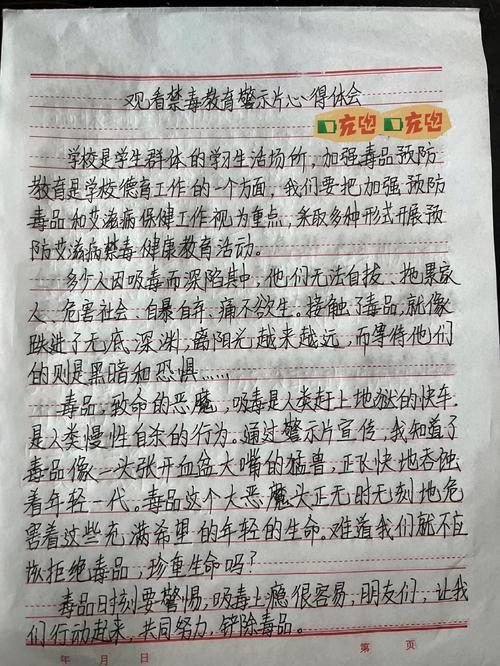 观看禁毒教育警示片心得体会
充电 充电
学校是学生群体的学习生活场所，加强毒品预防
教育是学校德育工作的一个方面，我们要把加强预防
毒品和艾滋病保健工作视为重点，采取多种形式开展预
防艾滋病禁毒健康教育活动。
多少人因吸毒而深陷其中，他们无法自拔、拖累家
人、危害社会、自暴自弃、痛不欲生。接触了毒品，就像
跌进了无底深渊，离阳光越来越远，而等待他们
的则是黑暗和恐惧……
毒品，致命的恶魔，吸毒是人类赶上地狱的快车，
是人类慢性自杀的行为。通过警示片宣传，我知道了
毒品像一头张开血盆大嘴的猛兽，正飞快地吞蚀
着年轻一代。毒品这个大恶魔头正无时无刻地危
害着这些充满希望的年轻的生命。难道我们就不应
该拒绝毒品，珍重生命吗？
毒品时刻要警惕，吸毒上瘾很容易，朋友们，让我
们行动起来，共同努力，铲除毒品。
年 月 日 第 页